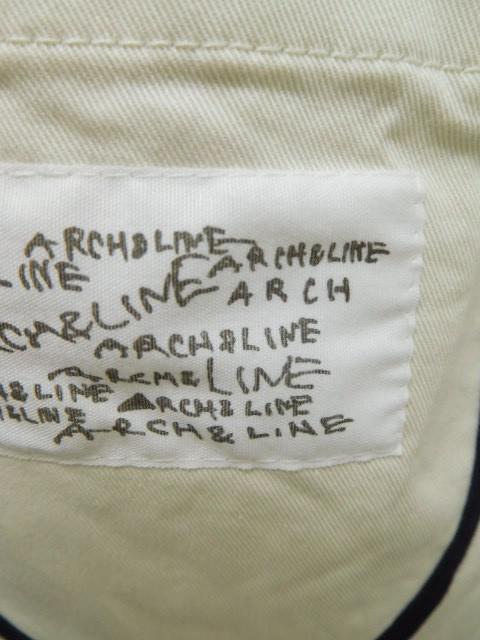 ARCH&LINE
ARCH&LINE
LINE
ARCH
CH&LINE
ARCH&LINE
ARCH&LINE
H&LINE
ARCH&LINE
H&LINE
ARCH&LINE